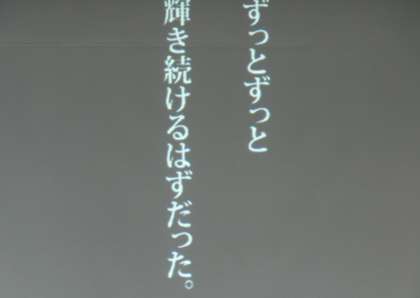 ずっとずっと
輝き続けるはずだった。